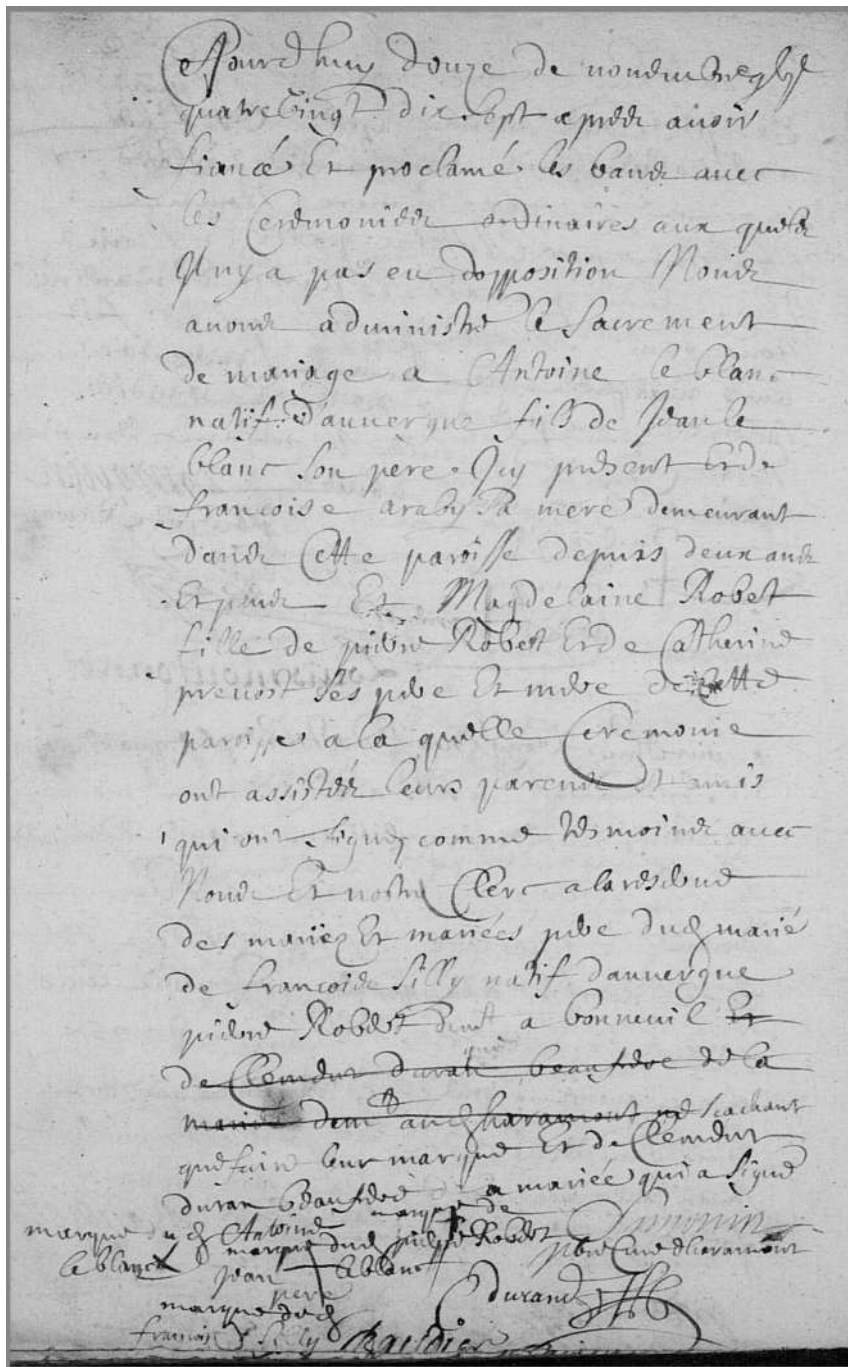 Aujourd'huy douze de novembre
quatre vingt dix sept apres avoir
fiancé Et proclamé les bans avec
les Ceremonies ordinaires aux quels
Il n'y a pas eu d'opposition Nous
avons administré le sacrement
de mariage a Antoine le blanc
natif d'auvergne fils de Jean le
blanc son père Icy present Et de
francoise araby sa mere demeurant
dans Cette paroisse depuis deux ans
Et Magdelaine Robet
fille de pierre Robet Et de Catherine
prevost ses pere Et mere de Cette
paroisse a la quelle Ceremonie
ont assistés leurs parens Et amis
qui ont signez comme tesmoins avec
Nous Et nostre Clerc a la reserve
des mariez Et mariées pere dud marié
de francois silly natif d'auvergne
pierre Robet demt a bonneuil Et
de Clement durant beaufrere de la
mariée dem aud haramont ne scachant
que faire leur marque Et de Clement
duran beaufrere de la mariée qui a signé
marque dud Antoine marque de Simonin
le blanc marque dud pierre Robet pbre Curé d'haramont
jean le blanc
pere durand
marque dud
francois silly